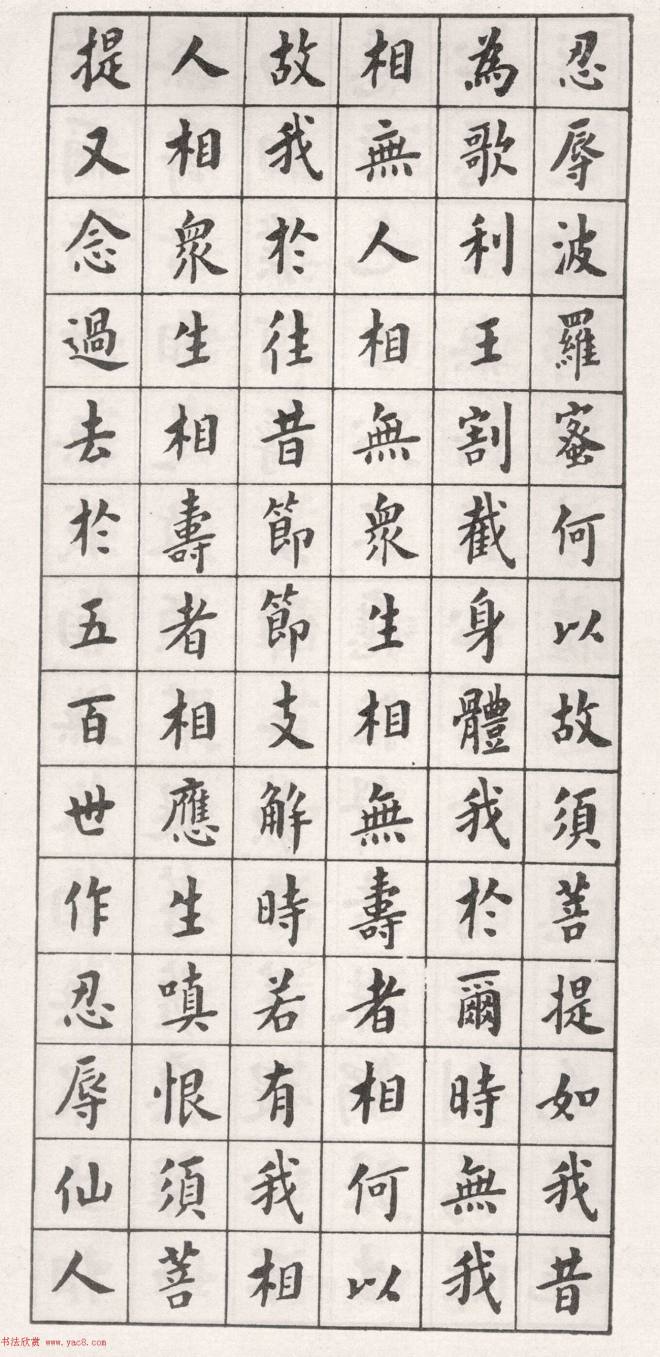 忍辱波羅蜜何以故須菩提如我昔
為歌利王割截身體我於爾時無我
相無人相無眾生相無壽者相何以
故我於往昔節節支解時若有我相
人相眾生相壽者相應生嗔恨須菩
提又念過去於五百世作忍辱仙人
书法欣赏 www.yac8.com